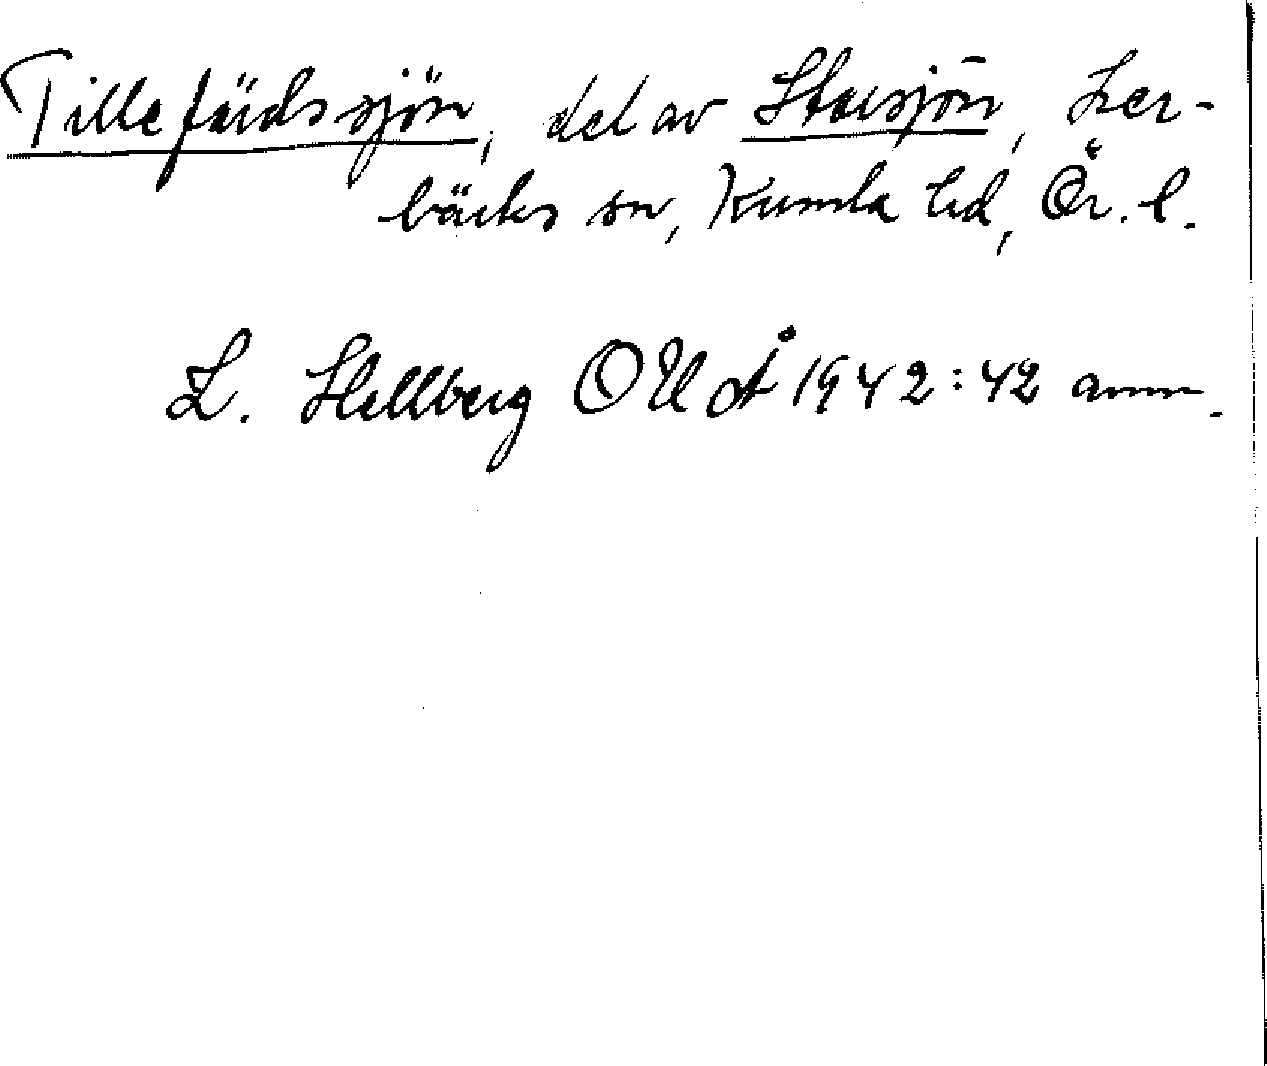 Tillefärdssjön, del av Storsjön, Ler-
bäcks sn, Kumla hd, Ör. l.
L. Hellberg OUÅ 1942:42 anm.